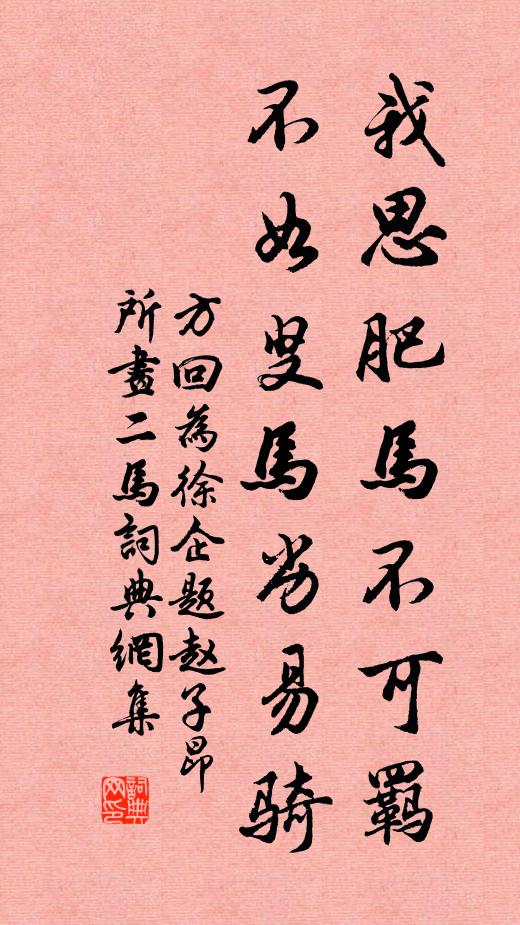 我思肥馬不可羈
不如叟馬劣易騎
方回為徐企題赵子昂
所畫二馬詞典網集
詞典網印